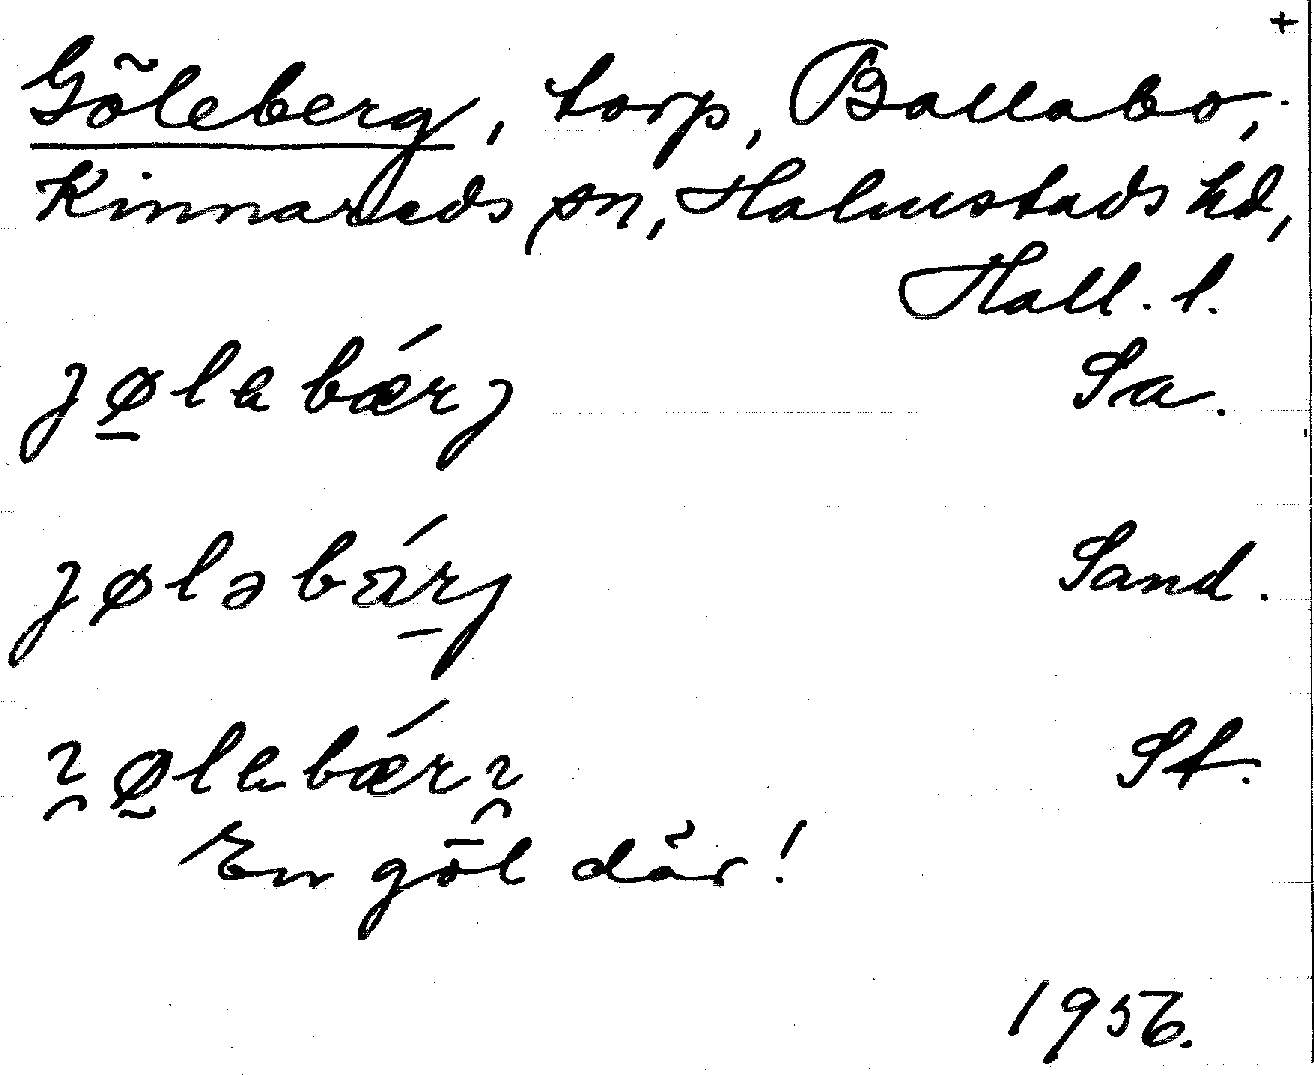 +
Göleberg, torp, Ballabo,
Kinnareds sn, Halmstads hd,
Hall. l.
jø̱lebǽrj Sa.
jøləbǽrj Sand.
Sf.
En göl där!
1956.